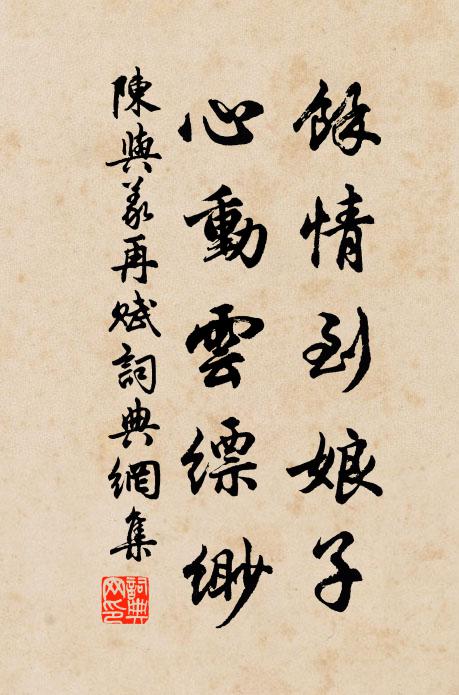 餘情到娘子
心動雲縹緲
陳與義再賦詞典網集
詞典
网印